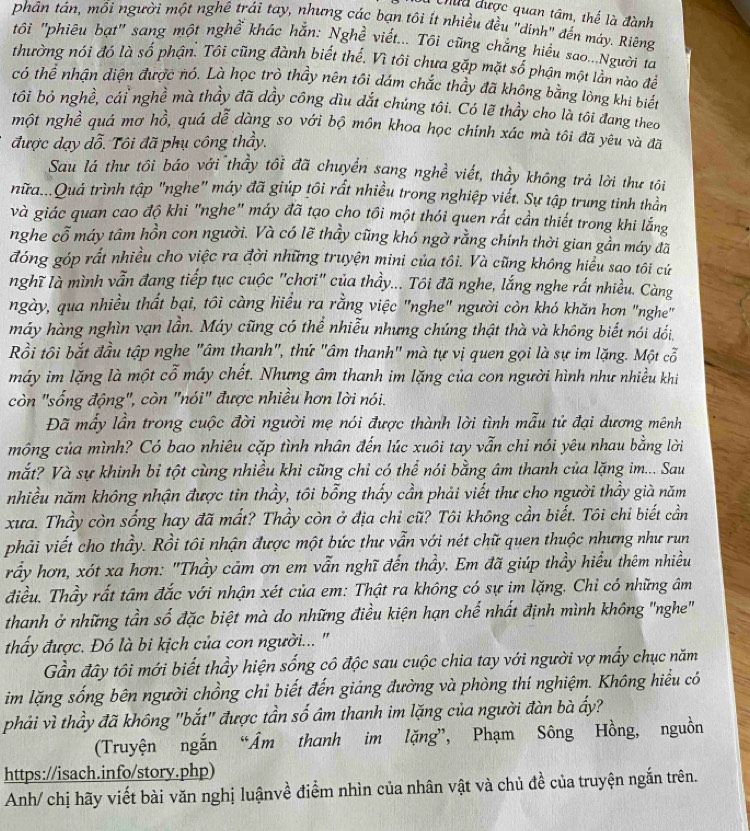 chưa được quan tâm, thế là đành
phân tán, mỗi người một nghề trái tay, nhưng các bạn tôi ít nhiều đều "dính" đến máy. Riêng
tôi "phiêu bạt" sang một nghề khác hẳn: Nghề viết... Tôi cũng chẳng hiểu sao...Người ta
thường nói đó là số phận. Tôi cũng đành biết thế. Vì tôi chưa gặp mặt số phận một lần nào để
có thể nhận diện được nó. Là học trò thầy nên tôi dám chắc thầy đã không bằng lòng khi biết
tôi bỏ nghề, cái nghề mà thầy đã dầy công dìu dắt chúng tôi. Có lẽ thầy cho là tôi đang theo
một nghề quá mơ hồ, quá dễ dàng so với bộ môn khoa học chính xác mà tôi đã yêu và đã
được dạy dỗ. Tôi đã phụ công thầy.
Sau lá thư tôi báo với thầy tôi đã chuyển sang nghề viết, thầy không trả lời thư tôi
nữa...Quá trình tập "nghe" máy đã giúp tôi rất nhiều trong nghiệp viết. Sự tập trung tinh thần
và giác quan cao độ khi "nghe" máy đã tạo cho tôi một thói quen rất cần thiết trong khi lắng
nghe cỗ máy tâm hồn con người. Và có lẽ thầy cũng khó ngờ rằng chính thời gian gần máy đã
đóng góp rất nhiều cho việc ra đời những truyện mini của tôi. Và cũng không hiểu sao tôi cứ
nghĩ là mình vẫn đang tiếp tục cuộc "chơi" của thầy... Tôi đã nghe, lắng nghe rất nhiều. Càng
ngày, qua nhiều thất bại, tôi càng hiểu ra rằng việc "nghe" người còn khó khăn hơn "nghe"
máy hàng nghìn vạn lần. Máy cũng có thể nhiễu nhưng chúng thật thà và không biết nói dối.
Rồi tôi bắt đầu tập nghe "âm thanh", thứ "âm thanh" mà tự vị quen gọi là sự im lặng. Một cỗ
máy im lặng là một cỗ máy chết. Nhưng âm thanh im lặng của con người hình như nhiều khi
còn "sống động", còn "nói" được nhiều hơn lời nói.
Đã mấy lần trong cuộc đời người mẹ nói được thành lời tình mẫu tử đại dương mênh
mông của mình? Có bao nhiêu cặp tình nhân đến lúc xuôi tay vẫn chỉ nói yêu nhau bằng lời
mắt? Và sự khinh bỉ tột cùng nhiều khi cũng chỉ có thể nói bằng âm thanh của lặng im... Sau
nhiều năm không nhận được tin thầy, tôi bỗng thấy cần phải viết thư cho người thầy già năm
xưa. Thầy còn sống hay đã mất? Thầy còn ở địa chỉ cũ? Tôi không cần biết. Tôi chỉ biết cần
phải viết cho thầy. Rồi tôi nhận được một bức thư vẫn với nét chữ quen thuộc nhưng như run
rẩy hơn, xót xa hơn: "Thầy cảm ơn em vẫn nghĩ đến thầy. Em đã giúp thầy hiểu thêm nhiều
điều. Thầy rất tâm đắc với nhận xét của em: Thật ra không có sự im lặng. Chỉ có những âm
thanh ở những tần số đặc biệt mà do những điều kiện hạn chế nhất định mình không "nghe"
thấy được. Đó là bi kịch của con người... "
Gần đây tôi mới biết thầy hiện sống cô độc sau cuộc chia tay với người vợ mấy chục năm
im lặng sống bên người chồng chỉ biết đến giảng đường và phòng thí nghiệm. Không hiểu có
phải vì thầy đã không "bắt" được tần số âm thanh im lặng của người đàn bà ấy?
(Truyện ngắn "Âm thanh im lặng", Phạm Sông Hồng, nguồn
https://isach.info/story.php)
Anh/ chị hãy viết bài văn nghị luậnvề điểm nhìn của nhân vật và chủ đề của truyện ngắn trên.